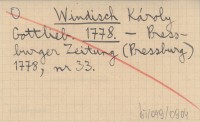 O Windisch Károly
Gottlieb. 1778. — Press-
burger Zeitung (Pressburg.)
1778, nr 33.